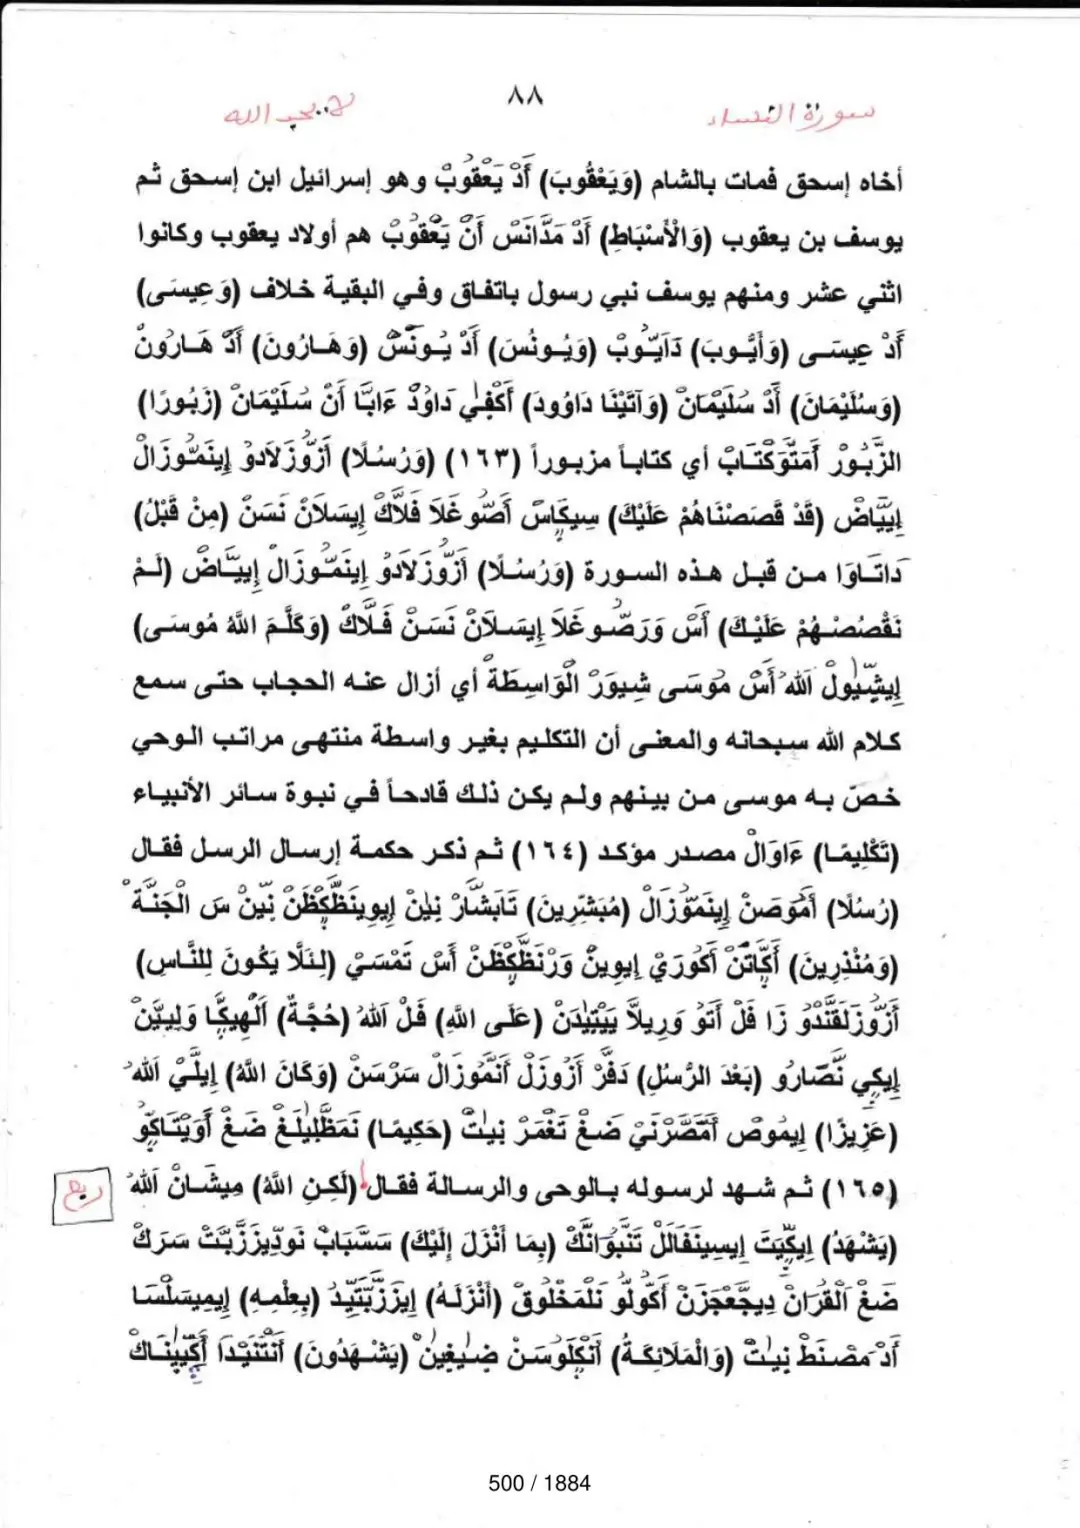 سورة النساء ٨٨ لا يحب الله
أخاه إسحق فمات بالشام (وَيَعْقُوبَ) أَدْ يَعْقُوبْ وهو إسرائيل ابن إسحق ثم
يوسف بن يعقوب (وَالْأَسْبَاطِ) أَدْ مَدَّانَسْ أَنْ يَعْقُوبْ هم أولاد يعقوب وكانوا
اثني عشر ومنهم يوسف نبي رسول باتفاق وفي البقية خلاف (وَعِيسَى)
أَدْ عِيسَى (وَأَيُّوبَ) دَايُّوبْ (وَيُونُسَ) أَدْ يُونَسْ (وَهَارُونَ) أَدْ هَارُونْ
(وَسُلَيْمَانَ) أَدْ سُلَيْمَانْ (وَآتَيْنَا دَاوُودَ) أَكْفِي دَاوُدْ ءَابَّا أَنْ سُلَيْمَانْ (زَبُورًا)
الزَّبُورْ أَمَتَوَكْتَابْ أي كتاباً مزبوراً (١٦٣) (وَرُسُلًا) أَزُّوزَلَادُو إِينَمُّوزَالْ
إِيِيَّاضْ (قَدْ قَصَصْنَاهُمْ عَلَيْكَ) سِيكَاسْ أَصُّوغَلَا فَلَّاكْ إِيسَلَانْ نَسَنْ (مِنْ قَبْلُ)
دَاتَاوَا من قبل هذه السورة (وَرُسُلًا) أَزُّوزَلَادُو إِينَمُّوزَالْ إِيِيَّاضْ (لَمْ
نَقْصُصْهُمْ عَلَيْكَ) أَسْ وَرَصُّوغَلَا إِيسَلَانْ نَسَنْ فَلَّاكْ (وَكَلَّمَ اللَّهُ مُوسَى)
إِيشِّيوَلْ اللهُ أَسْ مُوسَى شِيوَرْ الْوَاسِطَةْ أي أزال عنه الحجاب حتى سمع
كلام الله سبحانه والمعنى أن التكليم بغير واسطة منتهى مراتب الوحي
خصّ به موسى من بينهم ولم يكن ذلك قادحاً في نبوة سائر الأنبياء
(تَكْلِيمًا) ءَاوَالْ مصدر مؤكد (١٦٤) ثم ذكر حكمة إرسال الرسل فقال
(رُسُلًا) أَمُوصَنْ إِينَمُّوزَالْ (مُبَشِّرِينَ) تَابَشَّارْ نِينْ إِيوِينَظَّكِظَنْ نِّينْ سَ الْجَنَّةْ
(وَمُنْذِرِينَ) أَكَّاتَنْ أَكُورَيْ إِيوِينْ وَرْنَظَّكِظَنْ أَسْ تَمْسَيْ (لِئَلَّا يَكُونَ لِلنَّاسِ)
أَزُّوزَلَقَنْدُو زَا فَلْ أَتَو وَرِيلَّا يَيْتِيدَنْ (عَلَى اللَّهِ) فَلْ اللهْ (حُجَّةٌ) أَلْهِيكَّا وَلِييَّنْ
إِيكِي نَّصَّارُو (بَعْدَ الرُّسُلِ) دَفَّرْ أَزُوزَلْ أَنَمُّوزَالْ سَرْسَنْ (وَكَانَ اللَّهُ) إِيلَّيْ اللهْ
(عَزِيزًا) إِيمُوصْ أَمَّصَّرْنَيْ ضَغْ تَغْمَرْ نِيتْ (حَكِيمًا) نَمَظَّلِيلَغْ ضَغْ أَوَيْتَاكُّو
(١٦٥) ثم شهد لرسوله بالوحى والرسالة فقال (لَكِنِ اللَّهُ) مِيشَانْ اللهْ
ربع
(يَشْهَدُ) إِيكَّيَتَ إِيسِينَفَالَلْ تَنَّبُوَانَّكْ (بِمَا أَنْزَلَ إِلَيْكَ) سَسَّبَابْ نَودِّيزَزَّبَّتْ سَرَكْ
ضَغْ الْقُرَانْ دِيجَّعْجَزَنْ أَكُولُو نَلْمَخْلُوقْ (أَنْزَلَهُ) إِيزَزَّبَّتِيدْ (بِعِلْمِهِ) إِيمِيسَلْسَا
أَدْ مَصْنَطْ نِيتْ (وَالْمَلَائِكَةُ) أَنْكَلُوسَنْ ضِيغِينْ (يَشْهَدُونَ) أَنْتَنَيْدَا أَكَّيِينَاكْ
500 / 1884